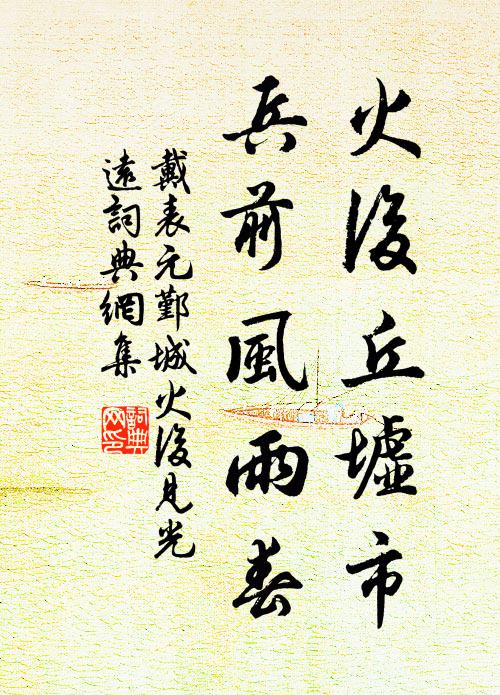 火後丘墟市
兵前風雨春
戴表元鄞城火後見光
遠詞典網集
詞典
网印